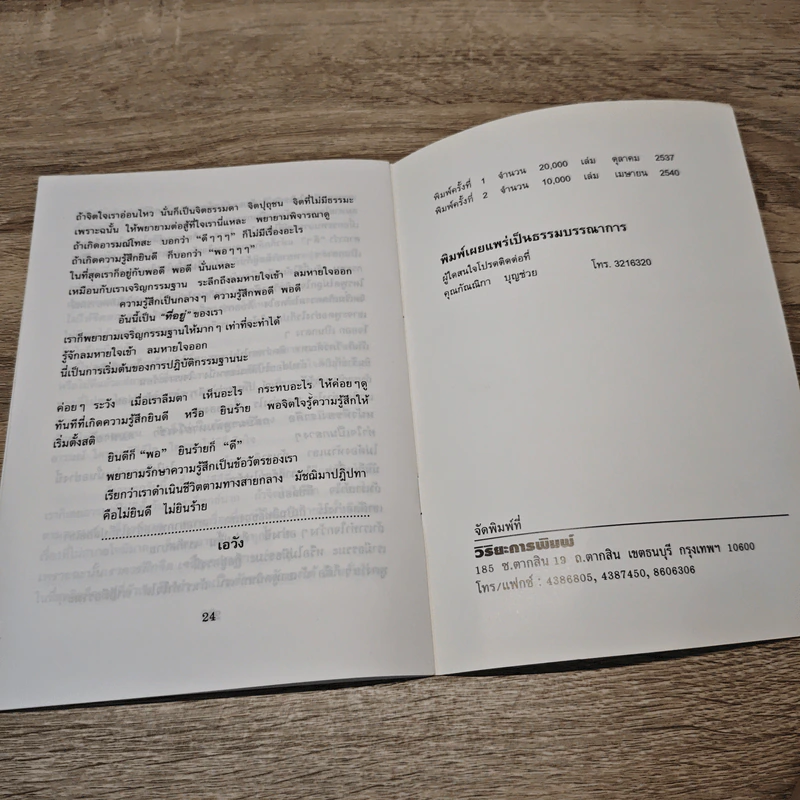 ถ้าจิตใจเราอ่อนไหว นั่นก็เป็นจิตธรรมดา จิตปุถุชน จิตที่ไม่มีธรรมะ
เพราะฉนั้น ให้พยายามต่อสู้ที่ใจเรานี่แหละ พยายามพิจารณาดู
ถ้าเกิดอารมณ์โทสะ บอกว่า “ดีๆๆๆ” ก็ไม่มีเรื่องอะไร
ถ้าเกิดความรู้สึกยินดี ก็บอกว่า “พอๆๆๆ”
ในที่สุดเราก็อยู่กับพอดี พอดี นั่นแหละ
เหมือนกับเราเจริญกรรมฐาน ระลึกถึงลมหายใจเข้า ลมหายใจออก
ความรู้สึกเป็นกลางๆ ความรู้สึกพอดี พอดี
อันนี้เป็น “ที่อยู่” ของเรา
เราก็พยายามเจริญกรรมฐานให้มากๆ เท่าที่จะทำได้
รู้จักลมหายใจเข้า ลมหายใจออก
นี่เป็นการเริ่มต้นของการปฏิบัติกรรมฐานนะ
ค่อยๆ ระวัง เมื่อเราลืมตา เห็นอะไร กระทบอะไร ให้ค่อยๆดู
ทันทีที่เกิดความรู้สึกยินดี หรือ ยินร้าย พอจิตใจรู้ความรู้สึกให้
เริ่มตั้งสติ
ยินดีก็ “พอ” ยินร้ายก็ “ดี”
พยายามรักษาความรู้สึกเป็นข้อวัตรของเรา
เรียกว่าเราดำเนินชีวิตตามทางสายกลาง มัชฌิมาปฏิปทา
คือไม่ยินดี ไม่ยินร้าย
เอวัง
24
พิมพ์ครั้งที่ 1 จำนวน 20,000 เล่ม ตุลาคม 2537
พิมพ์ครั้งที่ 2 จำนวน 10,000 เล่ม เมษายน 2540
พิมพ์เผยแพร่เป็นธรรมบรรณาการ
ผู้ใดสนใจโปรดติดต่อที่
คุณกัณณิกา บุญช่วย โทร. 3216320
จัดพิมพ์ที่
วิริยะการพิมพ์
185 ซ.ตากสิน 19 ถ.ตากสิน เขตธนบุรี กรุงเทพฯ 10600
โทร/แฟกซ์ : 4386805, 4387450, 8606306